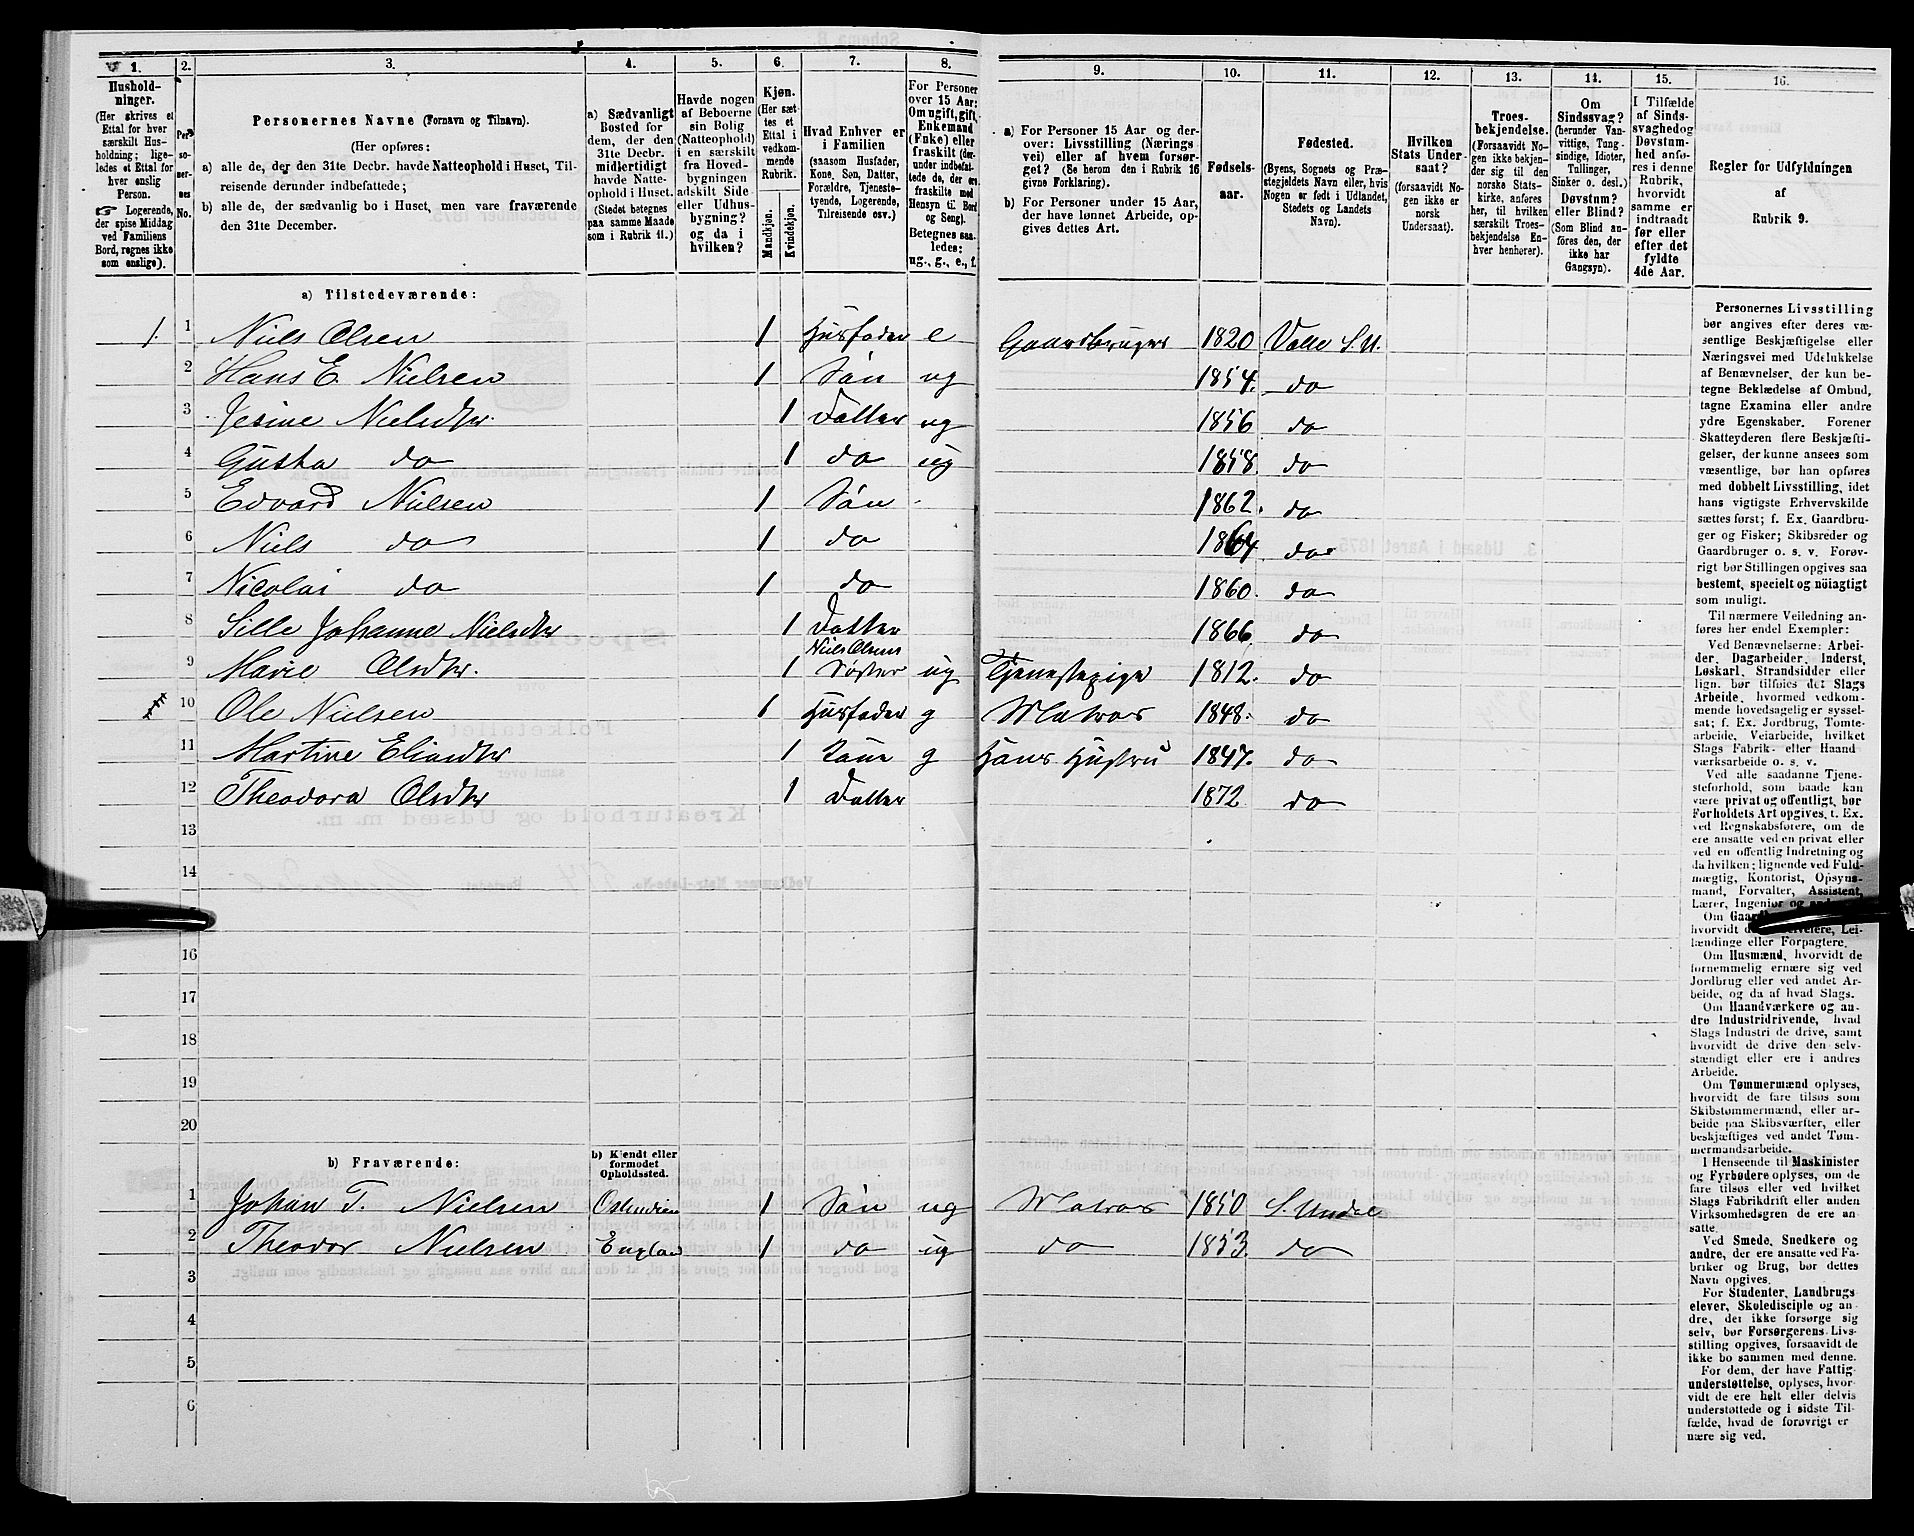 1. 2. 3. 4. 5. 6. 7. 8.
Hushold-
ninger.
(Her skrives et
Ettal for hver
særskilt Hus-
holdning; lige-
ledes et Ettal for
hver enslig
Person.
☞ Logerende,
der spise Middag
ved Familiens
Bord, regnes ikke
som enslige).
Per-
so-
ner-
nes
No.
Personernes Navne (Fornavn og Tilnavn).
(Her opføres:
a) alle de, der den 31te Decbr. havde Natteophold i Huset, Til-
reisende derunder indbefattede;
b) alle de, der sædvanlig bo i Huset, men vare fraværende
den 31te December.
a) Sædvanligt
Bosted for
dem, der den
31te Decbr.
midlertidigt
havde Natte-
ophold i Huset.
(Stedet betegnes
paa samme Maade
som i Rubrik 11.)
Havde nogen
af Beboerne
sin Bolig
(Natteophold)
i en særskilt
fra Hoved-
bygningen
adskilt Side-
eller Udhus-
bygning?
og da i
hvilken?
Kjøn.
(Her sæt-
tes et
Ettal i
vedkom-
mende
Rubrik.
Mandkjøn.
Kvindekjøn.
Hvad Enhver er
i Familien
(saasom Husfader,
Kone, Søn, Datter,
Forældre, Tjeneste-
tyende, Logerende,
Tilreisende osv.)
For Personer
over 15 Aar:
Om ugift, gift,
Enkemand
(Enke) eller
fraskilt (der-
under indbefat-
tede de, der ere
fraskilte med
Hensyn til Bord
og Seng).
Betegnes saa-
ledes:
ug., g., e., f.
a) Tilstedeværende:
1. 1 Niels Olsen 1 Husfader e
2 Hans E. Nielsen 1 Søn ug
3 Jesine Nielsdtr. 1 Datter ug
4 Gusta do 1 do ug
5 Edvard Nielsen 1 Søn
6 Niels do 1 do
7 Nicolai do 1 do
8 Sille Johanne Nielsdtr 1 Datter
9 Marie Olsdtr. 1 Niels Olsens Søster ug
10 Ole Nielsen 1 Husfader g
11 Martine Eliasdtr 1 Kone g
12 Theodora Olsdtr 1 Datter
13
14
16
17
18
19
20
b) Fraværende:
b) Kjendt eller
formodet
Opholdssted.
1 Johan T. Nielsen Ostindien 1 Søn ug
2 Theodor Nielsen Englan 1 do ug
3
4
5
6
9. 10. 11. 12. 13. 14. 15. 16.
a) For Personer 15 Aar og der-
over: Livsstilling (Nærings-
vei) eller af hvem forsør-
get? (Se herom den i Rubrik 16
givne Forklaring).
b) For Personer under 15 Aar,
der have lønnet Arbeide, op-
gives dettes Art.
Fødsels-
aar.
Fødested.
(Byens, Sognets og Præ-
stegjeldets Navn eller, hvis
Nogen er født i Udlandet,
Stedets og Landets
Navn).
Hvilken
Stats Under-
saat?
(forsaavidt No-
gen ikke er
norsk
Undersaat).
Troes-
bekjendelse.
(Forsaavidt No-
gen ikke bekjen-
der sig til den
norske Stats-
kirke, anføres
her, til hvilken
særskilt Troes-
bekjendelse En-
hver henhører).
Om
Sindssvag?
(herunder Van-
vittige, Tung-
sindige, Idioter,
Tullinger,
Sinker o. desl.)
Døvstum?
eller Blind?
(Som Blind an-
føres den, der
ikke har
Gangsyn).
I Tilfælde
af Sinds-
svaghed og
Døvstum-
hed anfø-
res i denne
Rubrik,
hvorvidt
samme er
indtraadt
før eller
efter det
fyldte
4de Aar.
Regler for Udfyldningen
af
Rubrik 9.
Gaardbruger 1820 Valle S.U.
1854. do
1856 do
1858. do
1862. do
1864. do
1860. do
1866. do
Tjenestepige 1812. do
Matros 1848. do
Hans Hustru 1847. do
1872 do
Matros 1850 S. Undal
do 1853. do
Personernes Livsstilling
bør angives efter deres væ-
sentlige Beskjæftigelse eller
Næringsvei med Udelukkelse
af Benævnelser, der kun be-
tegne Beklædelse af Ombud,
tagne Examina eller andre
ydre Egenskaber. Forener
Skatteyderen flere Beskjæfti-
gelser, der kunne ansees som
væsentlige, bør han opføres
med dobbelt Livsstilling, idet
hans vigtigste Erhvervskilde
sættes først; f. Ex. Gaardbru-
ger og Fisker; Skibsreder og
Gaardbruger o. s. v. Forøv-
rigt bør Stillingen opgives saa
bestemt, specielt og nöiagtigt
som muligt.
Til nærmere Veiledning an-
føres her endel Exempler:
Ved Benævnelserne: Arbei-
der, Dagarbeider, Inderst,
Løskarl, Strandsidder eller
lign. bør tilføies det Slags
Arbeide, hvormed vedkom-
mende hovedsagelig er syssel-
sat; f. Ex. Jordbrug, Tomte-
arbeide, Veiarbeide, hvilket
Slags Fabrik- eller Haand-
værksarbeide o. s. v.
Ved alle saadanne Tjene-
steforhold, som baade kan
være privat og offentligt, bør
Forholdets Art opgives, t. Ex.
ved Regnskabsførere, om de
ere ansatte ved en privat eller
ved en offentlig Indretning og
da hvilken; lignende ved Fuld-
mægtig, Kontorist, Opsyns-
mand, Forvalter, Assistent,
Lærer, Ingeniør og
Om
hvorvidt Lei-
lændinge eller Forpagtere.
Om Husmænd, hvorvidt de
fornemmelig ernære sig ved
Jordbrug eller ved andet Ar-
beide, og da af hvad Slags.
Om Haandværkere og an-
dre Industridrivende, hvad
Slags Industri de drive, samt
hvorvidt de drive den selv-
stændigt eller ere i andres
Arbeide.
Om Tømmermænd oplyses,
hvorvidt de fare tilsøs som
Skibstømmermænd, eller ar-
beide paa Skibsværfter, eller
beskjæftiges ved andet Tøm-
mermandsarbeide.
I Henseende til Maskinister
og Fyrbødere oplyses, om de
fare tilsøs eller ved hvilket
Slags Fabrikdrift eller anden
Virksomhedsgren de ere an-
satte.
Ved Smede, Snedkere og
andre, der ere ansatte ved Fa-
briker og Brug, bør dettes
Navn opgives.
For Studenter, Landbrugs-
elever, Skoledisciple og an-
dre, der ikke forsørge sig
selv, bør Forsørgerens Livs-
stilling opgives, forsaavidt de
ikke bo sammen med denne.
For dem, der have Fattig-
understøttelse, oplyses, hvor-
vidt de ere helt eller delvis
understøttede og i sidste Til-
fælde, hvad de forøvrigt er-
nære sig ved.